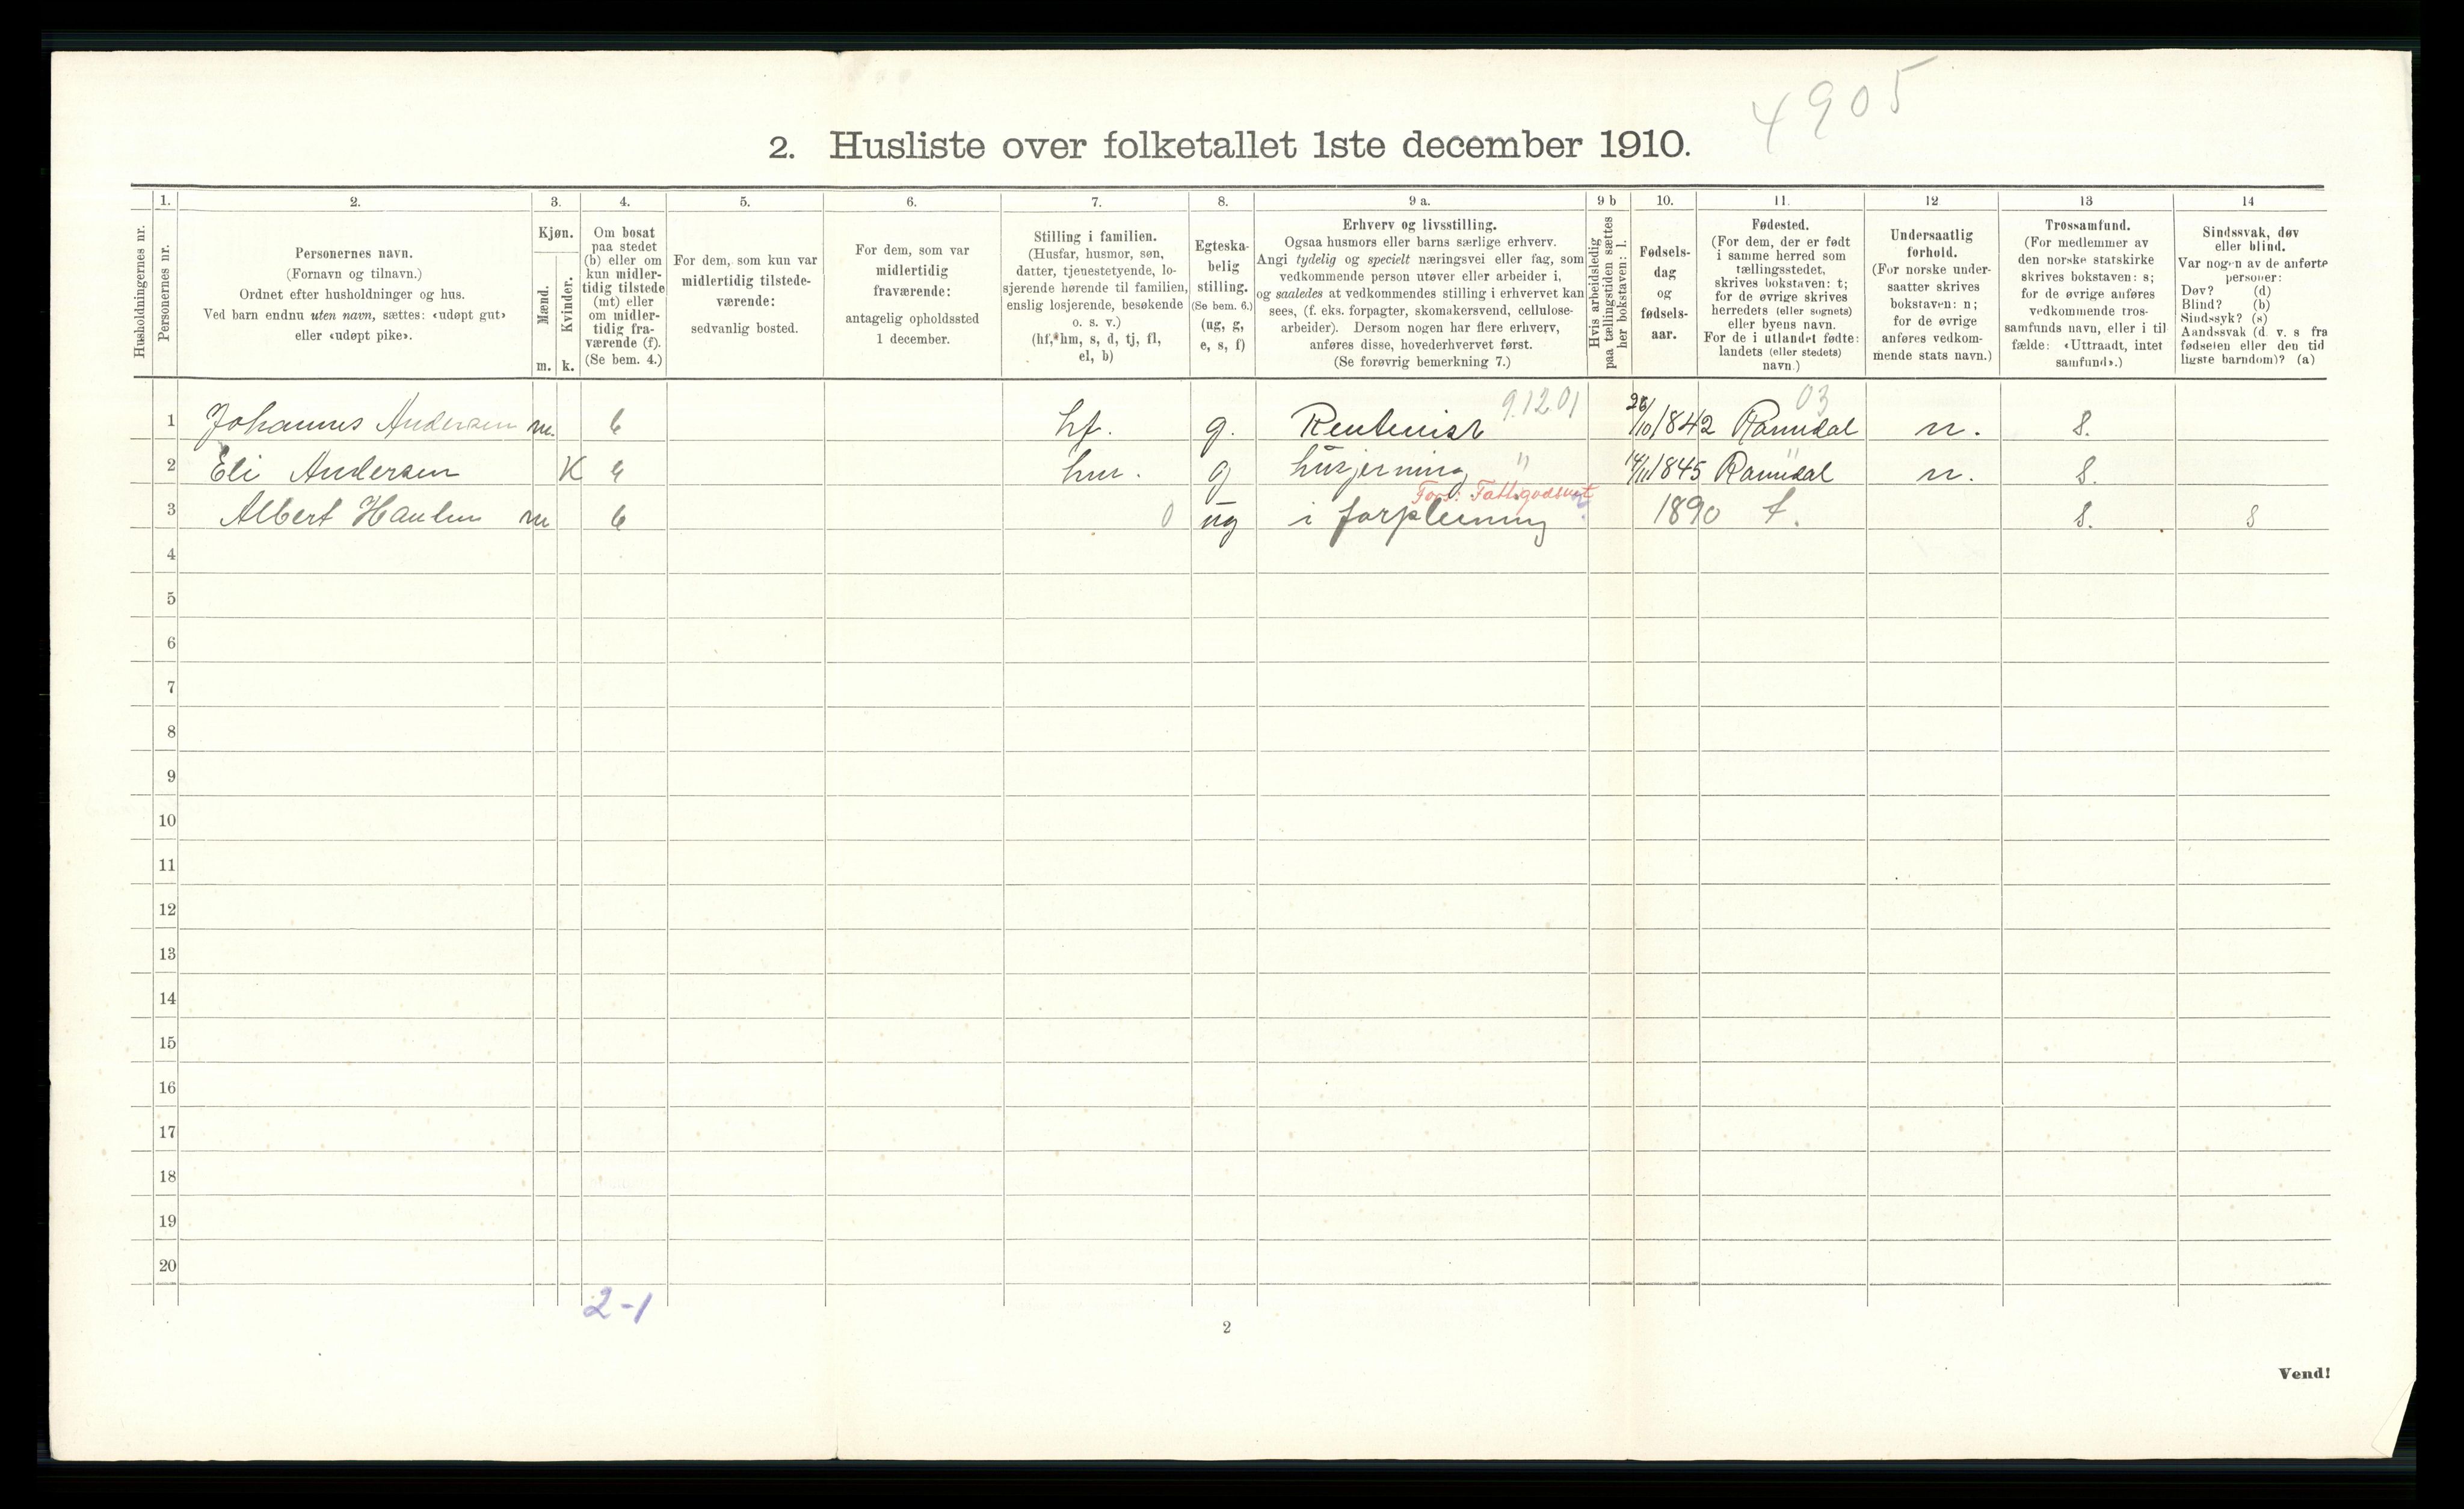 4905
2. Husliste over folketallet 1ste december 1910.
Husholdningernes nr.
1.
Personernes nr.
2.
Personernes navn.
(Fornavn og tilnavn.)
Ordnet efter husholdninger og hus.
Ved barn endnu uten navn, sættes: «udøpt gut»
eller «udøpt pike».
3.
Kjøn.
Mænd.
Kvinder.
m. k.
4.
Om bosat
paa stedet
(b) eller om
kun midler-
tidig tilstede
(mt) eller
om midler-
tidig fra-
værende (f).
(Se bem. 4.)
5.
For dem, som kun var
midlertidig tilstede-
værende:
sedvanlig bosted.
6.
For dem, som var
midlertidig
fraværende:
antagelig opholdssted
1 december.
7.
Stilling i familien.
(Husfar, husmor, søn,
datter, tjenestetyende, lo-
sjerende hørende til familien,
enslig losjerende, besøkende
o. s. v.)
(hf, hm, s, d, tj, fl,
el, b)
8.
Egteska-
belig
stilling.
(Se bem. 6.)
(ug, g,
e, s, f)
9 a.
Erhverv og livsstilling.
Ogsaa husmors eller barns særlige erhverv.
Angi tydelig og specielt næringsvei eller fag, som
vedkommende person utøver eller arbeider i,
og saaledes at vedkommendes stilling i erhvervet kan
sees, (f. eks. forpagter, skomakersvend, cellulose-
arbeider). Dersom nogen har flere erhverv,
anføres disse, hovederhvervet først.
(Se forøvrig bemerkning 7.)
9 b
Hvis arbeidsledig
paa tællingstiden sættes
her bokstaven: l.
10.
Fødsels-
dag
og
fødsels-
aar.
11.
Fødested.
(For dem, der er født
i samme herred som
tællingsstedet,
skrives bokstaven: t;
for de øvrige skrives
herredets (eller sognets)
eller byens navn.
For de i utlandet fødte:
landets (eller stedets)
navn.)
12
Undersaatlig
forhold.
(For norske under-
saatter skrives
bokstaven: n;
for de øvrige
anføres vedkom-
mende stats navn.)
13
Trossamfund.
(For medlemmer av
den norske statskirke
skrives bokstaven: s;
for de øvrige anføres
vedkommende tros-
samfunds navn, eller i til
fælde: «Uttraadt, intet
samfund».)
14
Sindssvak, døv
eller blind.
Var nogen av de anførte
personer:
Døv? (d)
Blind? (b)
Sindssyk? (s)
Aandssvak (d. v. s fra
fødselen eller den tid
ligste barndom)? (a)
9.12.01 03
1 Johannes Andersen m. b hf. g. Rentenist 26/10 1842 Romsdal n. S.
2 Eli Andersen K b hm. g husjerning " 14/11 1845 Romsdal n. S.
Fors: Fattigvæsenet
3 Albert Haulun m b 0 ug i forpleining 1890 t. S. S
4
5
6
7
8
9
10
11
12
13
14
15
16
17
18
19
20
2-1
2
Vend!